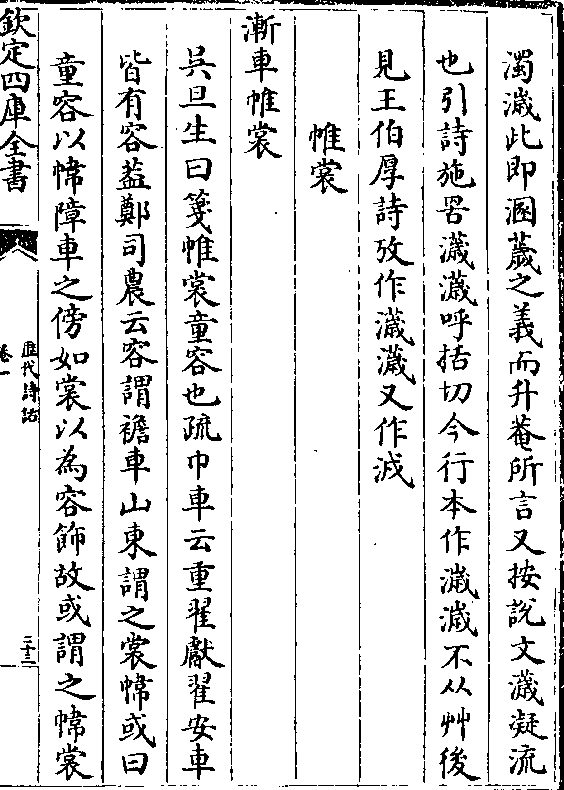 濁濊此即溷薉之義而升菴所言又按說文濊凝流
也引詩施罟濊濊呼括切今行本作濊濊不从艸後
見王伯厚詩攷作濊濊又作泧
帷裳
漸車帷裳
吳旦生曰箋帷裳童容也疏巾車云重翟厭翟安車
皆有容葢鄭司農云容謂襜車山東謂之裳幃或曰
童容以幃障車之傍如裳以為容飾故或謂之幃裳
欽定四庫全書
歷代詩話
卷一
三十三